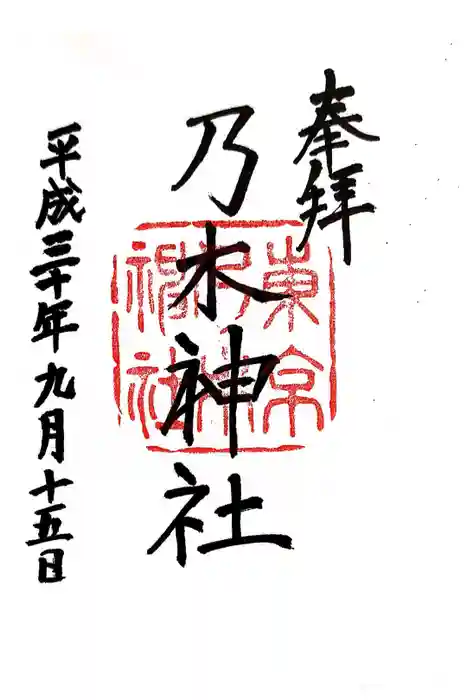 奉拝
乃木神社
東京
乃木
神社
平成三十年九月十五日